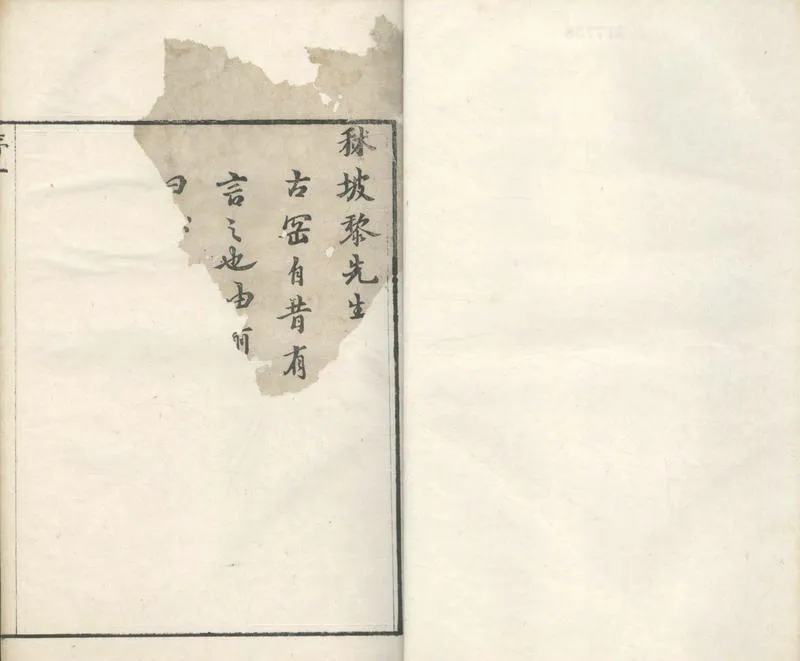 秫坡黎先生
古岡自昔有
言之也由